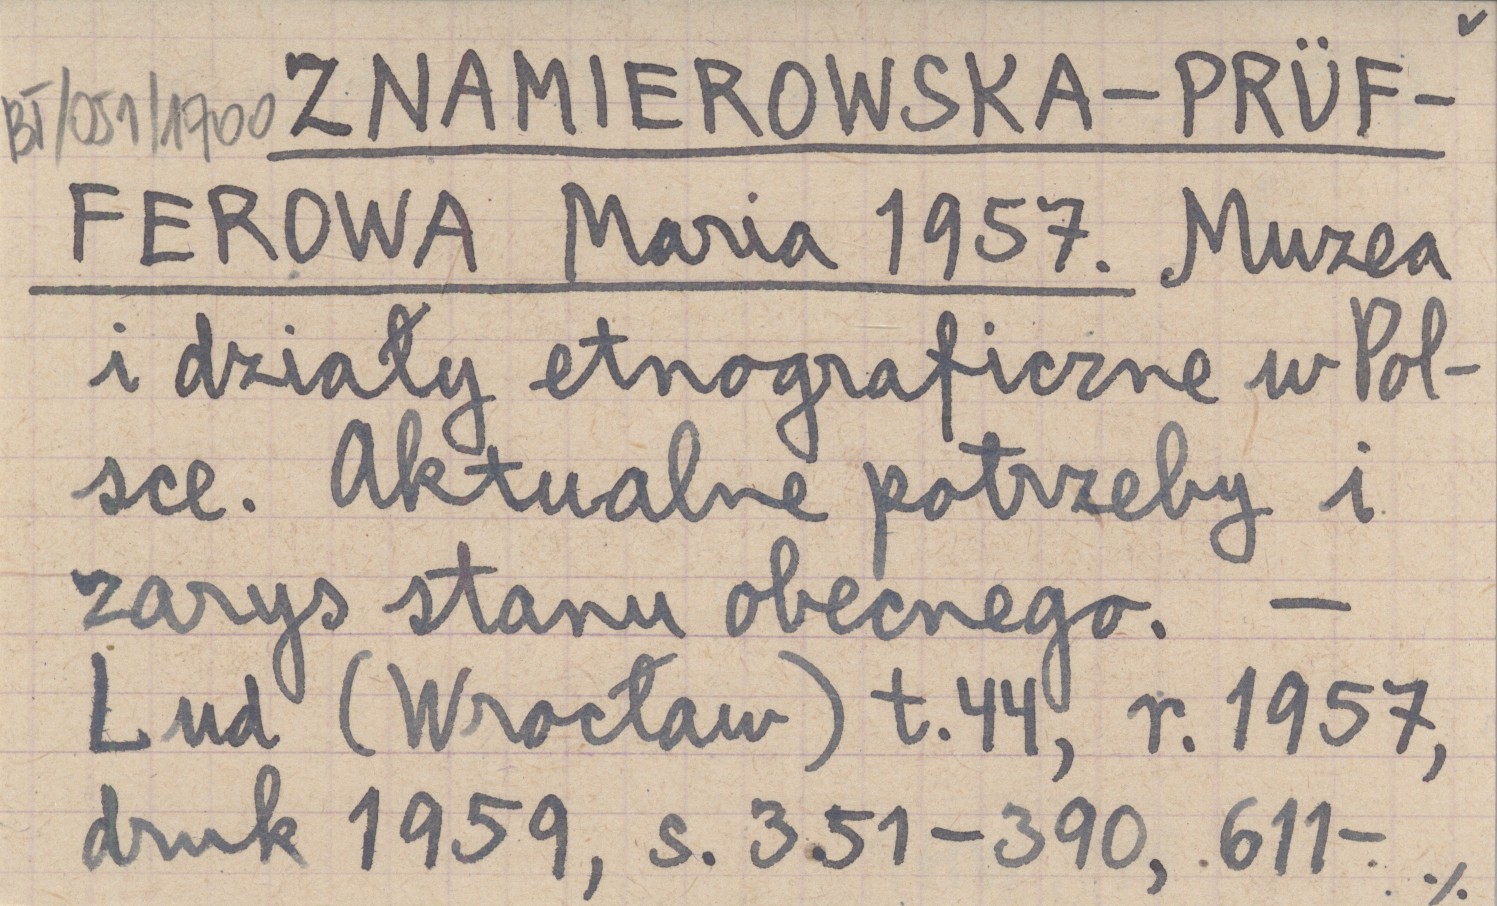 BT/051/1700 ZNAMIEROWSKA-PRÜF-
FEROWA Maria 1957. Muzea
i działy etnograficzne w Pol-
sce. Aktualne potrzeby i
zarys stanu obecnego. —
Lud (Wrocław) t. 44, r. 1957,
druk 1959, s. 351-390, 611-
./.